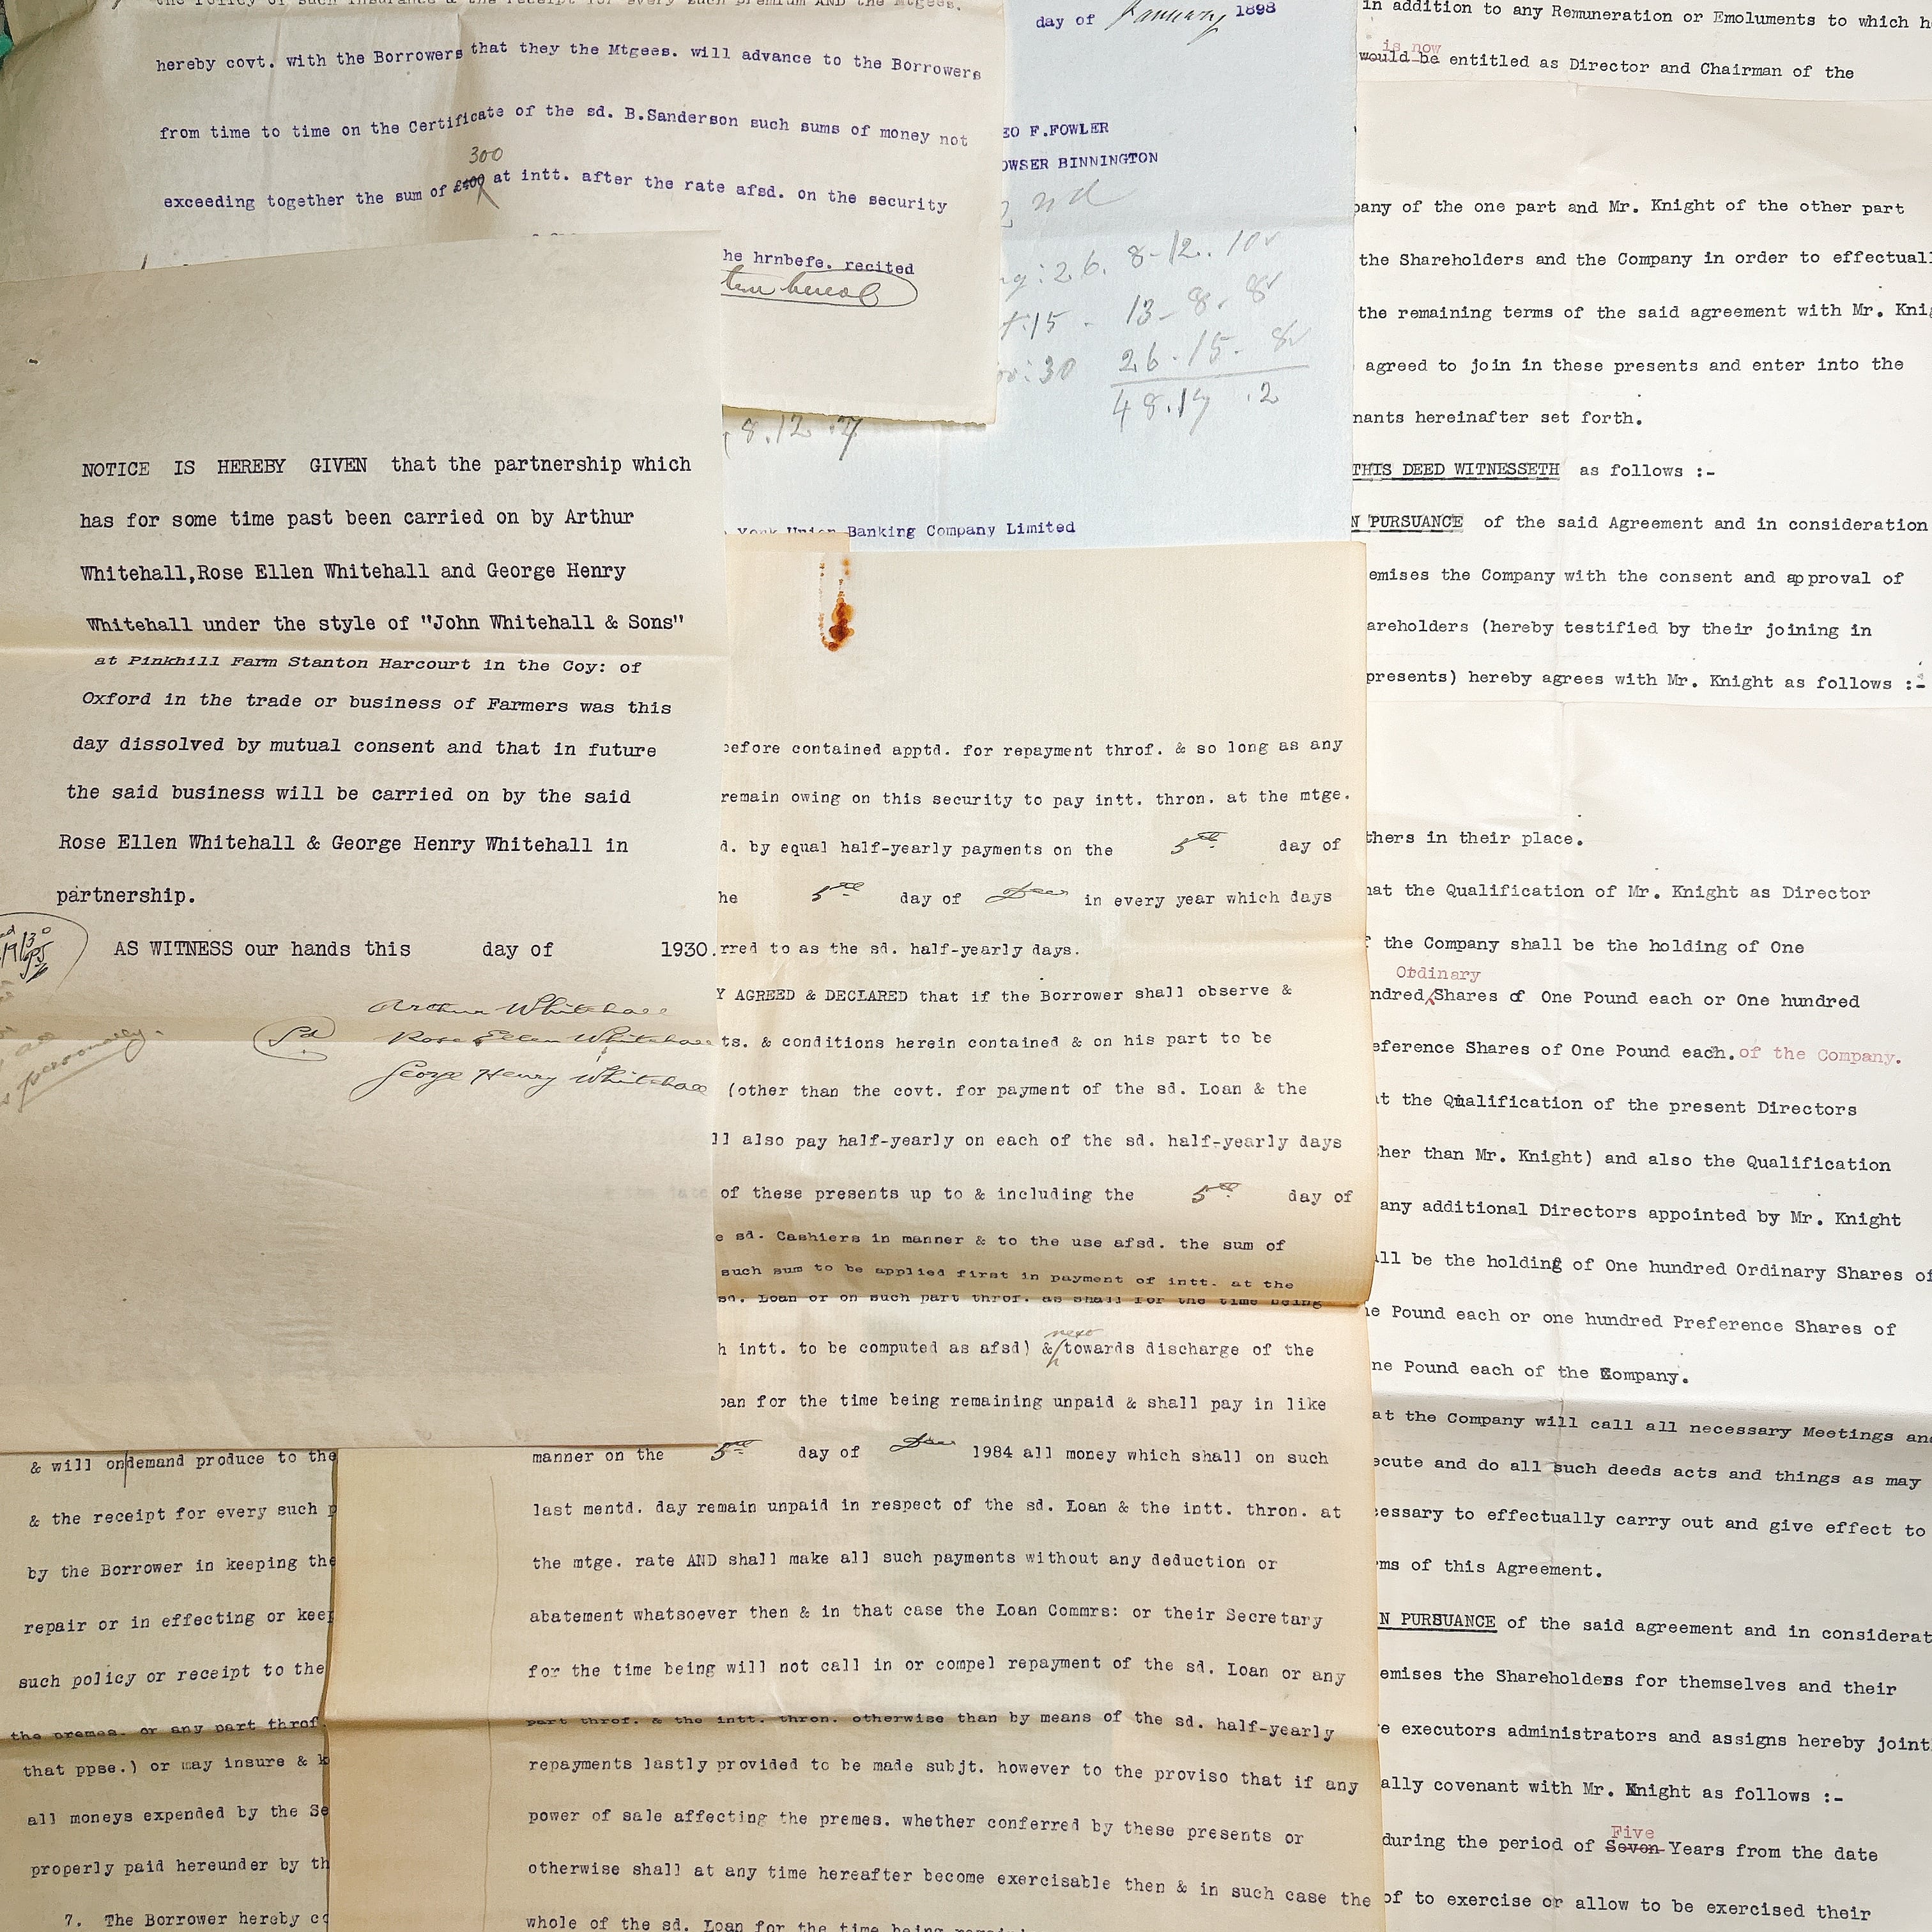 the Policy of such insurance & the receipt for every such premium AND the Mtgees.
hereby covt. with the Borrowers that they the Mtgees. will advance to the Borrowers
from time to time on the Certificate of the sd. B.Sanderson such sums of money not
300
exceeding together the sum of £400 at intt. after the rate afsd. on the security
he hrnbefe. recited
day of January 1898
EO F.FOWLER
OWSER BINNINGTON
2nd
26. 8-12. 10
15 - 13-8. 8
30 26.15. 8
48.17 .2
8.12.7
York Union Banking Company Limited
NOTICE IS HEREBY GIVEN that the partnership which
has for some time past been carried on by Arthur
Whitehall,Rose Ellen Whitehall and George Henry
Whitehall under the style of "John Whitehall & Sons"
at Pinkhill Farm Stanton Harcourt in the Coy: of
Oxford in the trade or business of Farmers was this
day dissolved by mutual consent and that in future
the said business will be carried on by the said
Rose Ellen Whitehall & George Henry Whitehall in
partnership.
AS WITNESS our hands this day of 1930.
Arthur Whitehall
Rose Ellen Whitehall
George Henry Whitehall
personally.
before contained apptd. for repayment throf. & so long as any
remain owing on this security to pay intt. thron. at the mtge.
d. by equal half-yearly payments on the 5th day of
he 5th day of Dec in every year which days
rred to as the sd. half-yearly days.
Y AGREED & DECLARED that if the Borrower shall observe &
ts. & conditions herein contained & on his part to be
(other than the covt. for payment of the sd. Loan & the
ll also pay half-yearly on each of the sd. half-yearly days
of these presents up to & including the 5th day of
e sd. Cashiers in manner & to the use afsd. the sum of
such sum to be applied first in payment of intt. at the
sd. Loan or on such part throf. as shall for the time being
next
h intt. to be computed as afsd) & towards discharge of the
oan for the time being remaining unpaid & shall pay in like
manner on the 5th day of Dec 1984 all money which shall on such
last mentd. day remain unpaid in respect of the sd. Loan & the intt. thron. at
the mtge. rate AND shall make all such payments without any deduction or
abatement whatsoever then & in that case the Loan Commrs: or their Secretary
for the time being will not call in or compel repayment of the sd. Loan or any
part throf. & the intt. thron. otherwise than by means of the sd. half-yearly
repayments lastly provided to be made subjt. however to the proviso that if any
power of sale affecting the premes. whether conferred by these presents or
otherwise shall at any time hereafter become exercisable then & in such case the
whole of the sd. Loan for the time being
& will on demand produce to the
& the receipt for every such p
by the Borrower in keeping the
repair or in effecting or keep
such policy or receipt to the
the premes. or any part throf.
that ppse.) or may insure & k
all moneys expended by the Se
properly paid hereunder by th
7. The Borrower hereby co
in addition to any Remuneration or Emoluments to which he
is now
would be entitled as Director and Chairman of the
pany of the one part and Mr. Knight of the other part
the Shareholders and the Company in order to effectuall
the remaining terms of the said agreement with Mr. Knig
agreed to join in these presents and enter into the
nants hereinafter set forth.
THIS DEED WITNESSETH as follows :-
N PURSUANCE of the said Agreement and in consideration
emises the Company with the consent and approval of
areholders (hereby testified by their joining in
presents) hereby agrees with Mr. Knight as follows :-
thers in their place.
hat the Qualification of Mr. Knight as Director
f the Company shall be the holding of One
Ordinary
ndred Shares of One Pound each or One hundred
eference Shares of One Pound each. of the Company.
at the Qualification of the present Directors
ther than Mr. Knight) and also the Qualification
any additional Directors appointed by Mr. Knight
all be the holding of One hundred Ordinary Shares of
ne Pound each or one hundred Preference Shares of
ne Pound each of the Company.
at the Company will call all necessary Meetings and
ecute and do all such deeds acts and things as may
cessary to effectually carry out and give effect to
rms of this Agreement.
N PURSUANCE of the said agreement and in considerat
emises the Shareholders for themselves and their
e executors administrators and assigns hereby joint
ally covenant with Mr. Knight as follows :-
Five
during the period of Seven Years from the date
of to exercise or allow to be exercised their